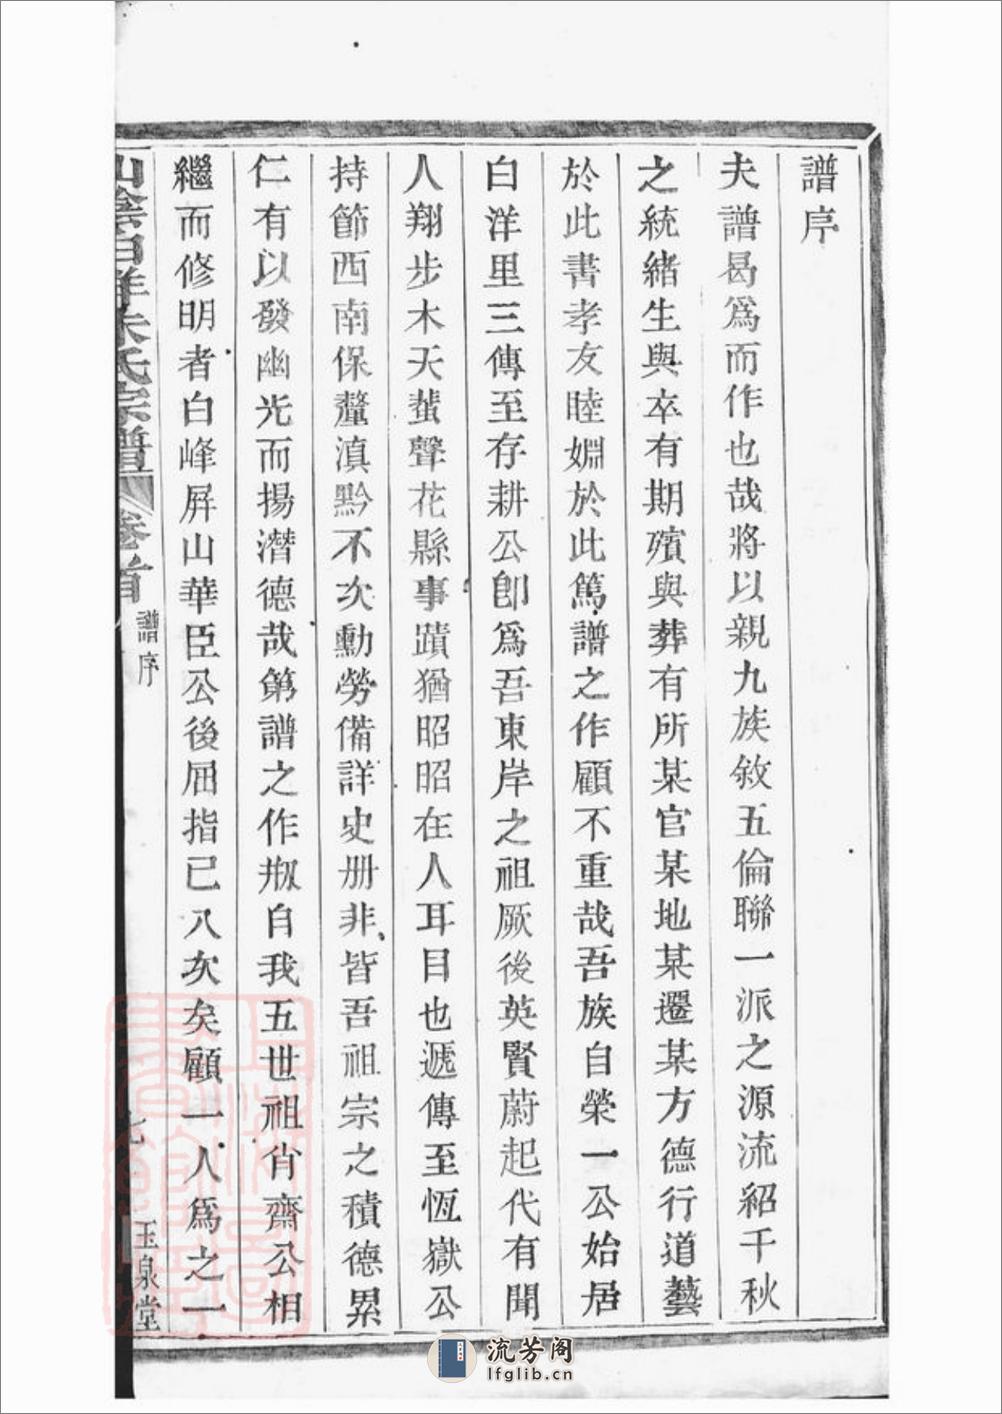 譜序
夫譜曷爲而作也哉將以親九族敘五倫聯一派之源流紹千秋
之統緒生與卒有期殯與葬有所某官某地某遷某方德行道藝
於此書孝友睦婣於此篤譜之作顧不重哉吾族自榮一公始居
白洋里三傳至存耕公卽爲吾東岸之祖厥後英賢蔚起代有聞
人翔步木天蜚聲花縣事蹟猶昭昭在人耳目也遞傳至恆嶽公
持節西南保釐滇黔不次勳勞備詳史册非皆吾祖宗之積德累
仁有以發幽光而揚潛德哉第譜之作刱自我五世祖肖齋公相
繼而修明者白峰屛山華臣公後屈指已八次矣顧一人爲之一
山陰白洋朱氏宗譜
卷首
譜序
七
玉泉堂
流芳阁
lfglib.cn